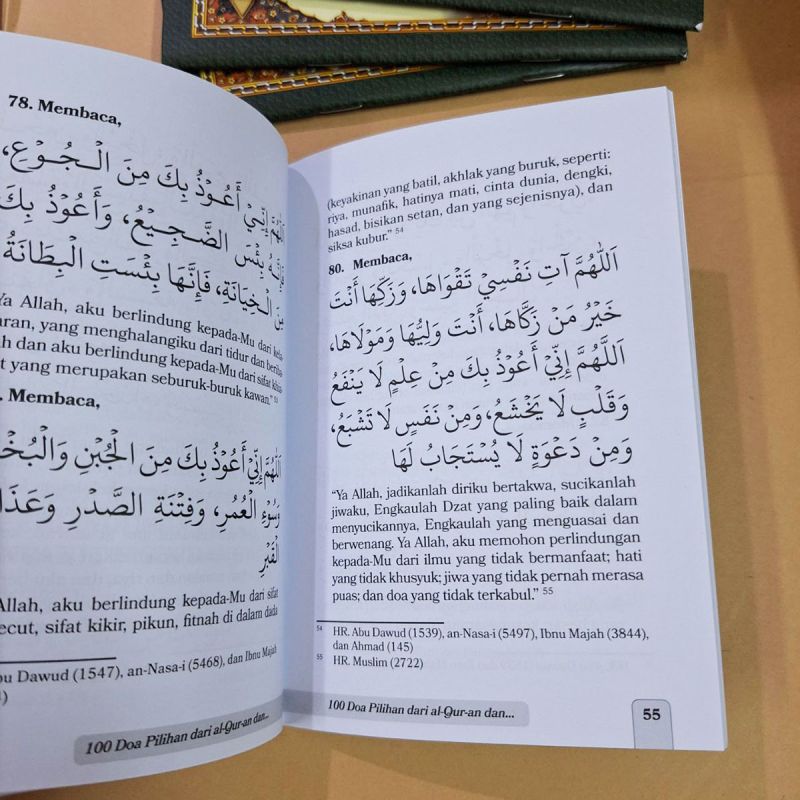 78. Membaca,
إِنِّيْ أَعُوْذُ بِكَ مِنَ الْجُوْعِ،
بِئْسَ الضَّجِيْعُ، وَأَعُوْذُ بِكَ
الْخِيَانَةِ، فَإِنَّهَا بِئْسَتِ الْبِطَانَةُ
Ya Allah, aku berlindung kepada-Mu dari
yang menghalangiku dari tidur dan
dan aku berlindung kepada-Mu dari sifat
yang merupakan seburuk-buruk kawan." 53
Membaca,
اَللّٰهُمَّ إِنِّيْ أَعُوْذُ بِكَ مِنَ الْجُبْنِ
وَسُوْءِ الْعُمُرِ، وَفِتْنَةِ الصَّدْرِ
الْقَبْرِ
Allah, aku berlindung kepada-Mu dari sifat
sifat kikir, pikun, fitnah di dalam dada
Dawud (1547), an-Nasa-i (5468), dan Ibnu Majah
100 Doa Pilihan dari al-Qur-an dan...
(keyakinan yang batil, akhlak yang buruk, seperti:
riya, munafik, hatinya mati, cinta dunia, dengki,
hasad, bisikan setan, dan yang sejenisnya), dan
siksa kubur." 54
80. Membaca,
اَللّٰهُمَّ آتِ نَفْسِيْ تَقْوَاهَا، وَزَكِّهَا أَنْتَ
خَيْرُ مَنْ زَكَّاهَا، أَنْتَ وَلِيُّهَا وَمَوْلَاهَا،
اَللّٰهُمَّ إِنِّيْ أَعُوْذُ بِكَ مِنْ عِلْمٍ لَا يَنْفَعُ
وَقَلْبٍ لَا يَخْشَعُ، وَمِنْ نَفْسٍ لَا تَشْبَعُ،
وَمِنْ دَعْوَةٍ لَا يُسْتَجَابُ لَهَا
"Ya Allah, jadikanlah diriku bertakwa, sucikanlah
jiwaku, Engkaulah Dzat yang paling baik dalam
menyucikannya, Engkaulah yang menguasai dan
berwenang. Ya Allah, aku memohon perlindungan
kepada-Mu dari ilmu yang tidak bermanfaat; hati
yang tidak khusyuk; jiwa yang tidak pernah merasa
puas; dan doa yang tidak terkabul." 55
54 HR. Abu Dawud (1539), an-Nasa-i (5497), Ibnu Majah (3844),
dan Ahmad (145)
55 HR. Muslim (2722)
100 Doa Pilihan dari al-Qur-an dan...
55